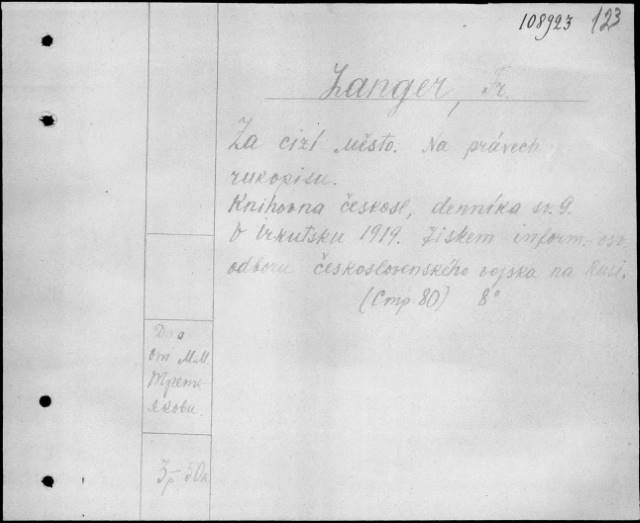 108923 123
Langer, Fr.
Za cizí město. Na právech
rukopisu.
Knihovna českosl. denníka sv. 9.
V Irkutsku 1919. Tiskem inform.-osv.
odboru československého vojska na Rusi.
(Стр 80) 8°
от М.М.
Третья
кова
3р 50к